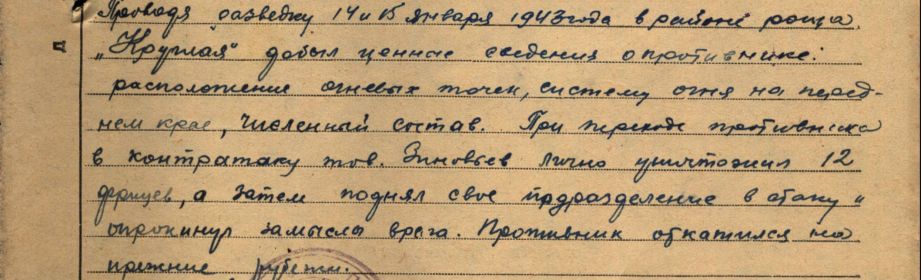 Проводя разведку 14 и 15 января 1943 года в районе роща
„Круглая" добыл ценные сведения о противнике:
расположение огневых точек, систему огня на перед-
нем крае, численный состав. При переходе противника
в контратаку тов. Зиновьев лично уничтожил 12
фрицев, а затем поднял свое подразделение в атаку и
опрокинул замыслы врага. Противник откатился на
прежние рубежи.
Д